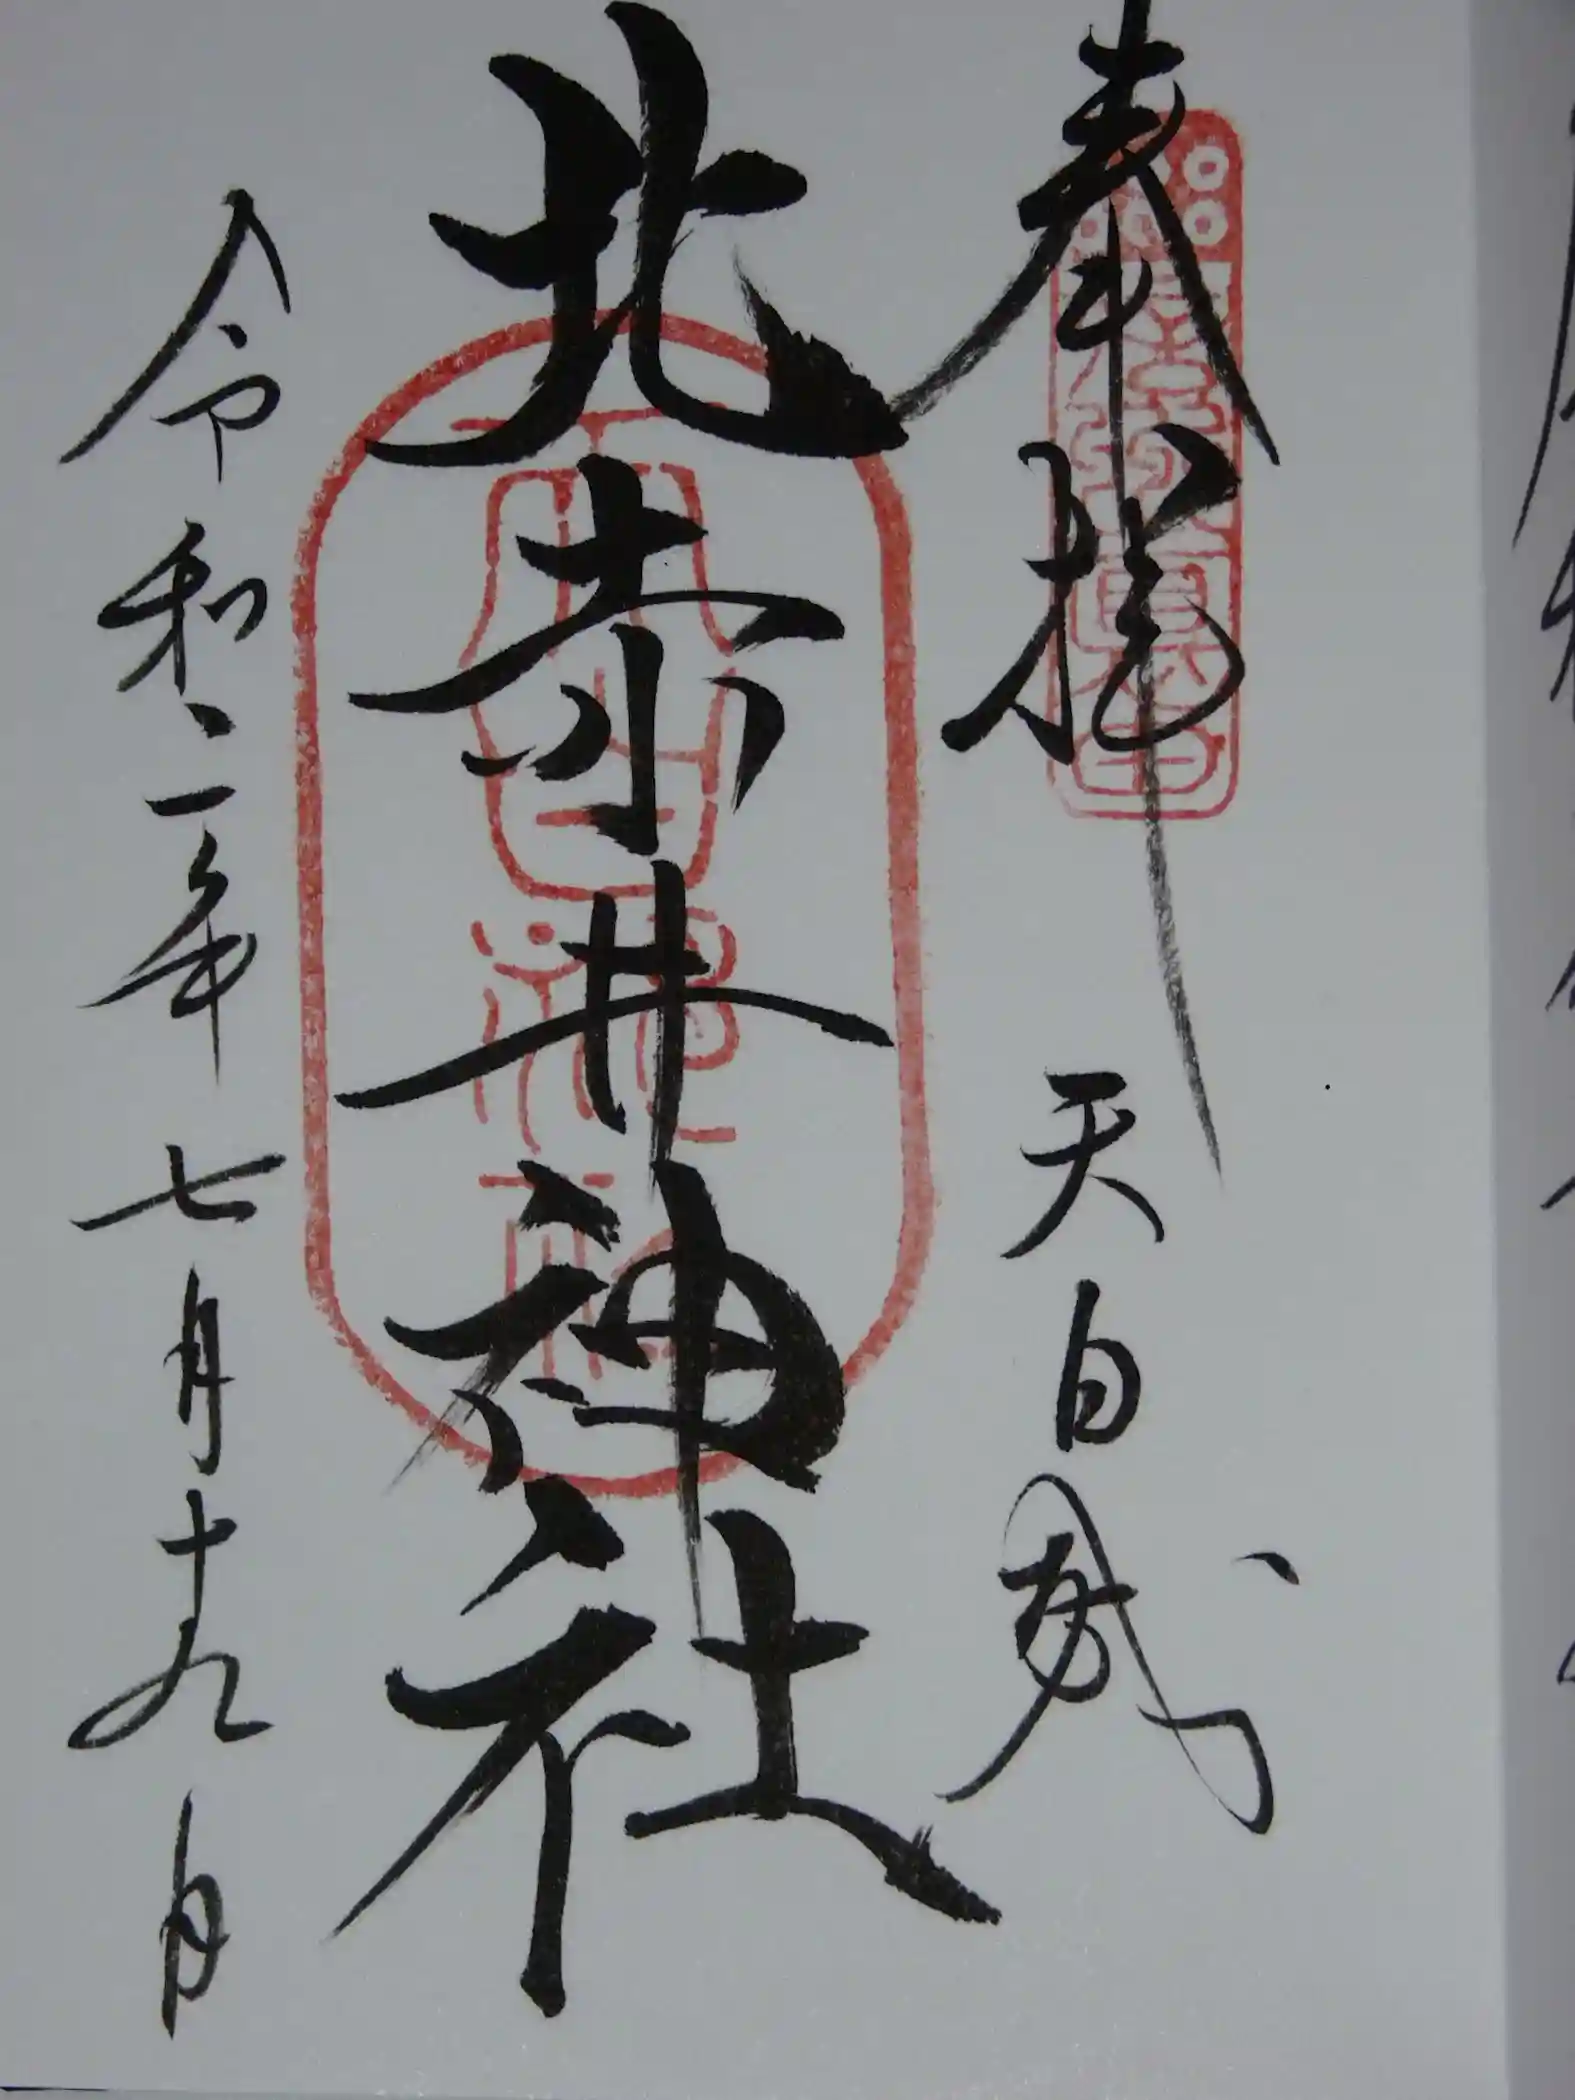 奉拝　天白城
北赤井神社
令和二年七月十九日